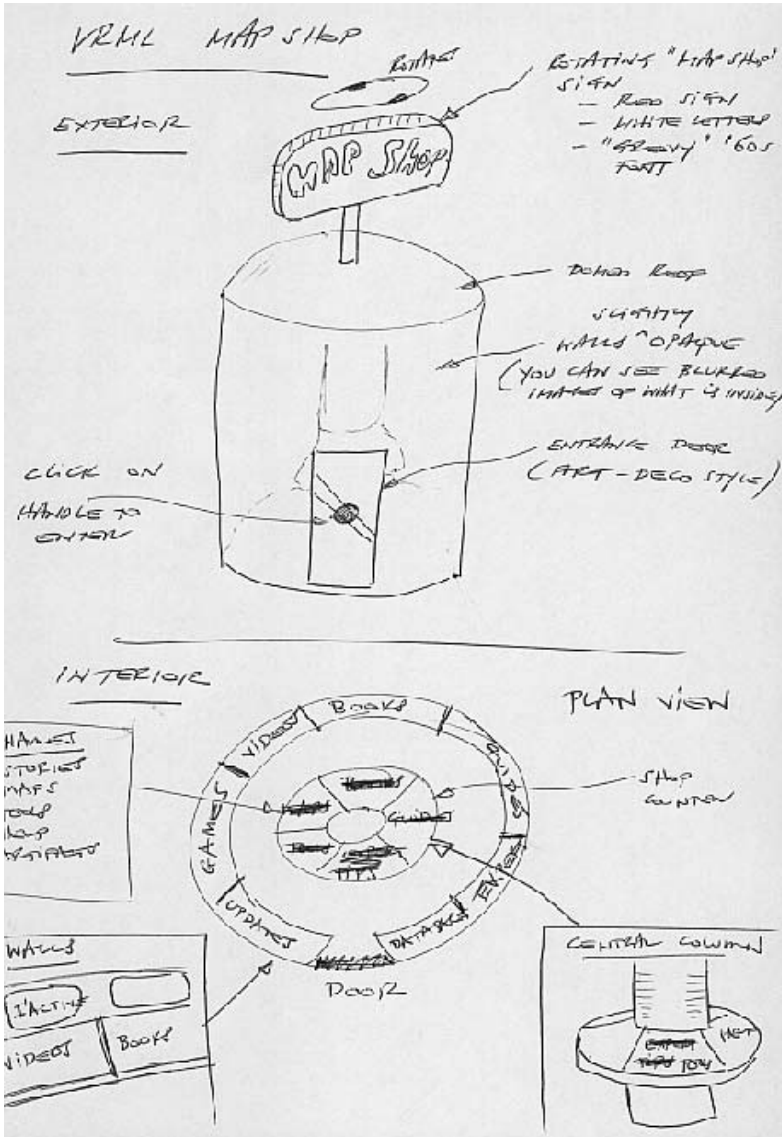 VRML MAP SHOP
EXTERIOR
ROTATES
ROTATING "MAP SHOP"
SIGN
- RED SIGN
- WHITE LETTERS
- "GROOVY" '60s
FONT
MAP SHOP
DOMED ROOF
SLIGHTLY
WALLS ^ OPAQUE
(YOU CAN SEE BLURRED
IMAGES OF WHAT IS INSIDE)
ENTRANCE DOOR
(ART-DECO STYLE)
CLICK ON
HANDLE TO
ENTER
INTERIOR
PLAN VIEW
STORIES
MAPS
VIDEOS
BOOKS
GUIDES
GAMES
UPDATES
DATABASES
GUIDES
SHOP
COUNTER
DOOR
WALLS
I'ACTIVE
VIDEOS
BOOKS
CENTRAL COLUMN
TIPS